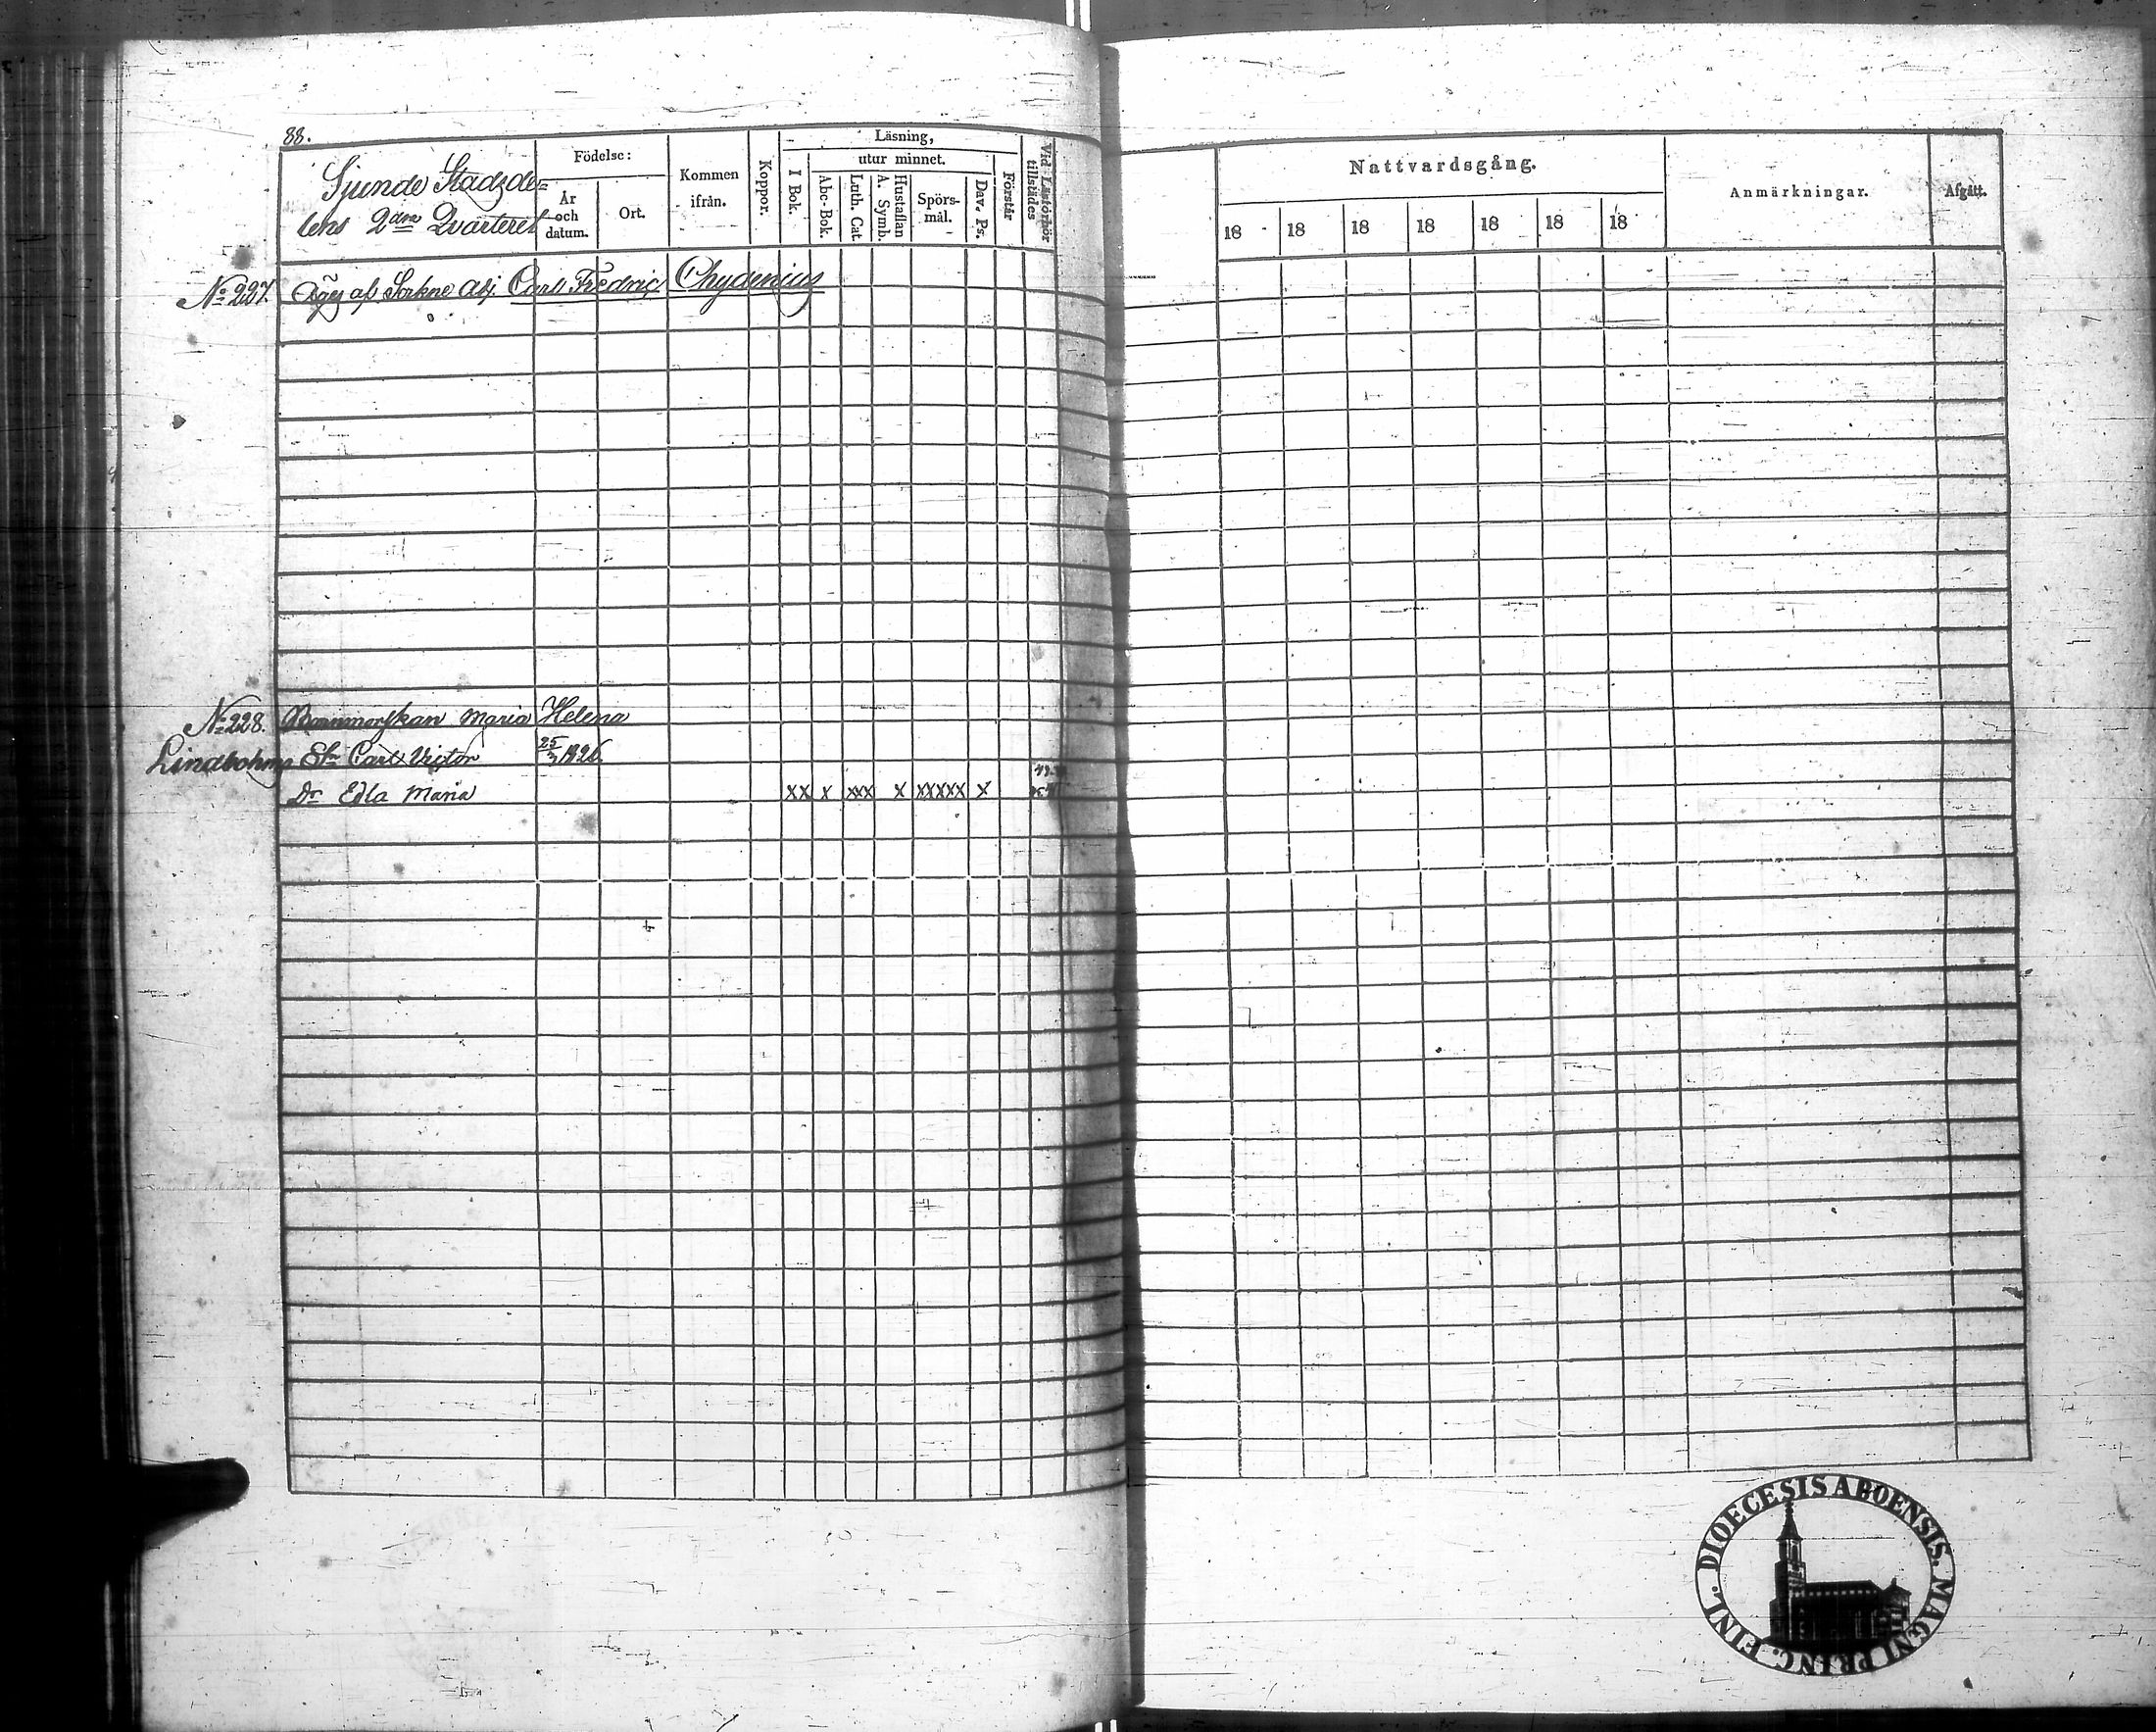 88.
Sjunde Stadsde=
lens 2dra Qvarteret
Födelse:
År
och
datum.
Ort.
Kommen
ifrån.
Koppor.
Läsning,
I Bok.
utur minnet.
Abc-Bok.
Luth. Cat.
Hustaflan
A. Symb.
Spörs-
mål.
Dav. Ps.
Förstår
Vid Läsförhör
tillstädes
Nattvardsgång.
18 18 18 18 18 18 18
Anmärkningar.
Afgått.
No 227. Äges af Sockne Adj. Carl Fredric Chydenius
No 228. Barnmorskan Maria Helena
Lindbohm Sn Carl Victor 25/3 1826.
Dr Edla Maria XX X XXX X XXXXX X
DIOECESIS ABOENSIS. MAGNI PRINC. FINL.